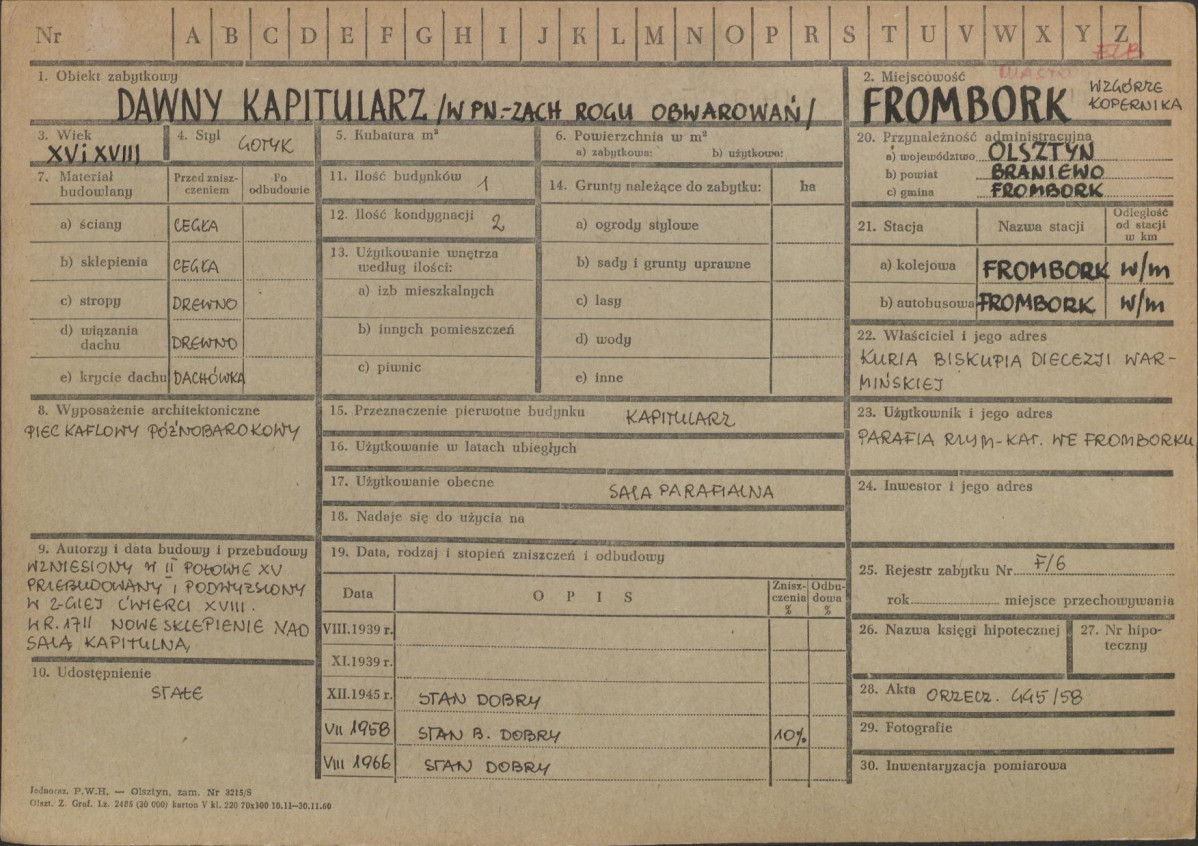 Nr A B C D E F G H I J K L M N O P R S T U V W X Y Z
1. Obiekt zabytkowy
DAWNY KAPITULARZ /W PN.-ZACH ROGU OBWAROWAŃ/
2. Miejscowość
FROMBORK WZGÓRZE
KOPERNIKA
3. Wiek
XV i XVIII
4. Styl GOTYK
5. Kubatura m³
6. Powierzchnia w m²
a) zabytkowa: b) użytkowa:
7. Materiał
budowlany
Przed znisz-
czeniem
Po
odbudowie
a) ściany CEGŁA
b) sklepienia CEGŁA
c) stropy DREWNO
d) wiązania
dachu DREWNO
e) krycie dachu DACHÓWKA
8. Wyposażenie architektoniczne
PIEC KAFLOWY PÓŹNOBAROKOWY
9. Autorzy i data budowy i przebudowy
WZNIESIONY W II POŁOWIE XV
PRZEBUDOWANY i PODWYŻSZONY
W 2-GIEJ ĆWIERCI XVIII.
W R. 1711 NOWE SKLEPIENIE NAD
SALĄ KAPITULNĄ
10. Udostępnienie
STAŁE
11. Ilość budynków 1
12. Ilość kondygnacji 2
13. Użytkowanie wnętrza
według ilości:
a) izb mieszkalnych
b) innych pomieszczeń
c) piwnic
14. Grunty należące do zabytku: ha
a) ogrody stylowe
b) sady i grunty uprawne
c) lasy
d) wody
e) inne
15. Przeznaczenie pierwotne budynku KAPITULARZ
16. Użytkowanie w latach ubiegłych
17. Użytkowanie obecne SALA PARAFIALNA
18. Nadaje się do użycia na
19. Data, rodzaj i stopień zniszczeń i odbudowy
Data O P I S Znisz-
czenia
% Odbu-
dowa
%
VIII.1939 r.
XI.1939 r.
XII.1945 r. STAN DOBRY
VII 1958 STAN B. DOBRY 10%
VIII 1966 STAN DOBRY
20. Przynależność administracyjna
a) województwo OLSZTYN
b) powiat BRANIEWO
c) gmina FROMBORK
21. Stacja Nazwa stacji Odległość
od stacji
w km
a) kolejowa FROMBORK w/m
b) autobusowa FROMBORK w/m
22. Właściciel i jego adres
KURIA BISKUPIA DIECEZJI WAR-
MIŃSKIEJ
23. Użytkownik i jego adres
PARAFIA RZYM-KAT. WE FROMBORKU
24. Inwestor i jego adres
25. Rejestr zabytku Nr F/6
rok miejsce przechowywania
26. Nazwa księgi hipotecznej
27. Nr hipo-
teczny
28. Akta ORZECZ. 445/58
29. Fotografie
30. Inwentaryzacja pomiarowa
Jednoraz. P.W.H. — Olsztyn, zam. Nr 3215/S
Olszt. Z. Graf. Lz. 2485 (30 000) karton V kl. 220 70x100 10.11—30.11.60